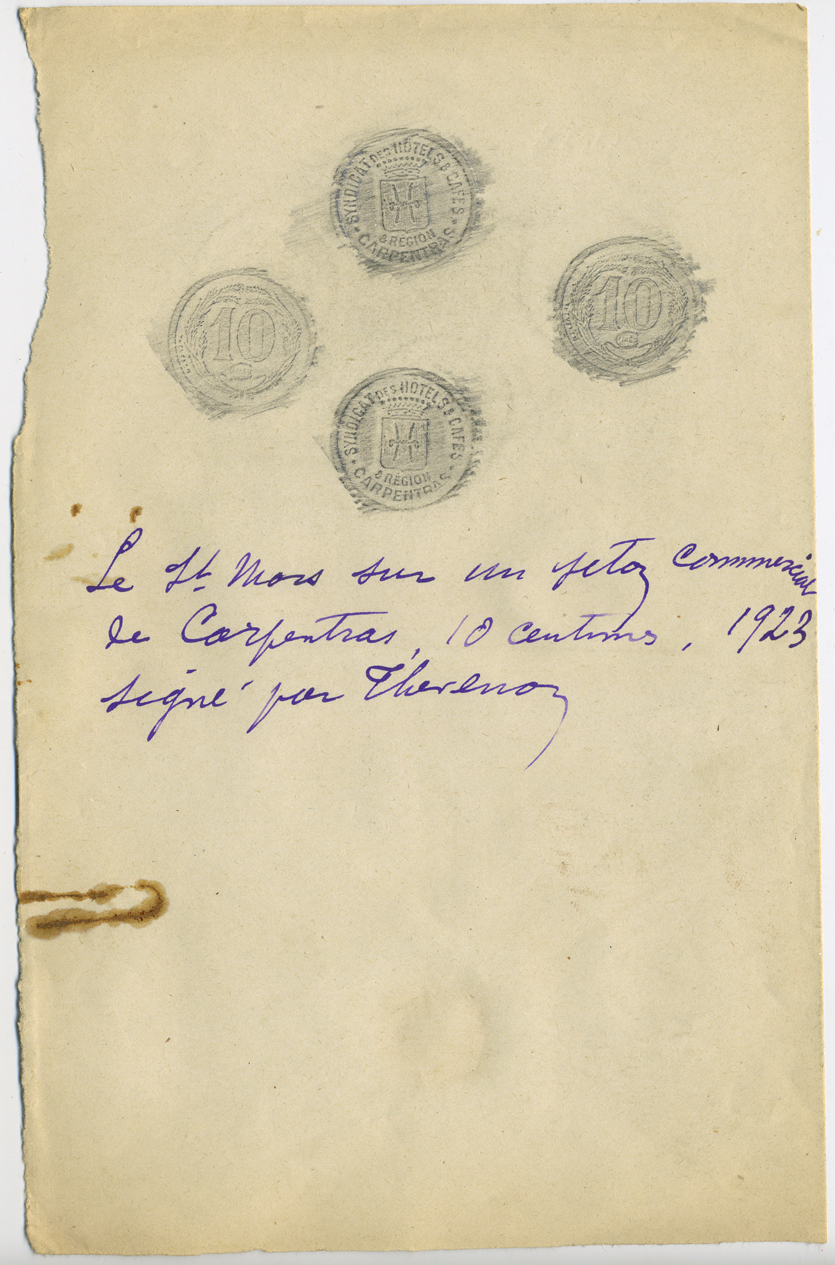 SYNDICAT DES HÔTELS & CAFÉS
& RÉGION
CARPENTRAS
10
10
SYNDICAT DES HOTELS & CAFÉS
& RÉGION
CARPENTRAS
Le St. Mors sur un jeton commercial
de Carpentras, 10 centimes, 1923
signé par Thevenon